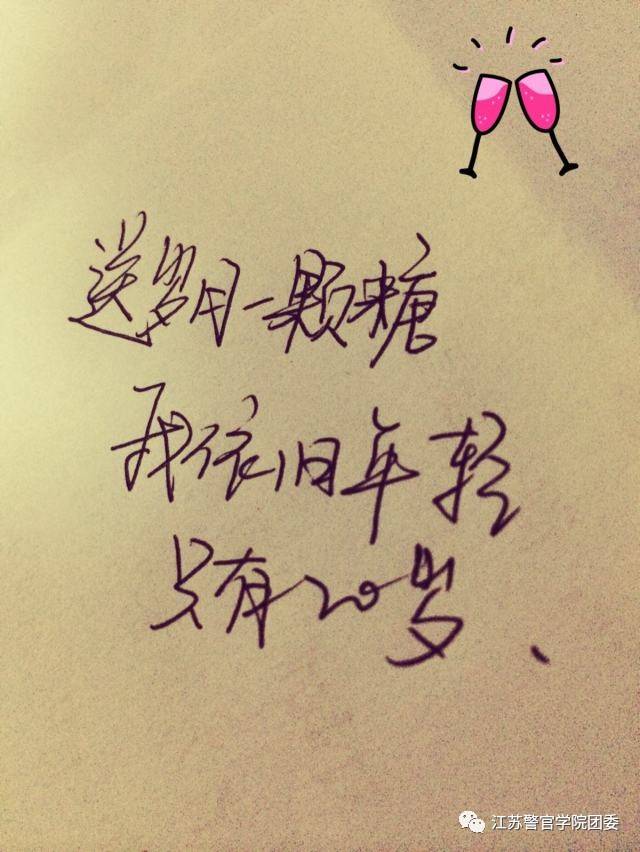 送岁月一颗糖
我依旧年轻
只有20岁、
江苏警官学院团委